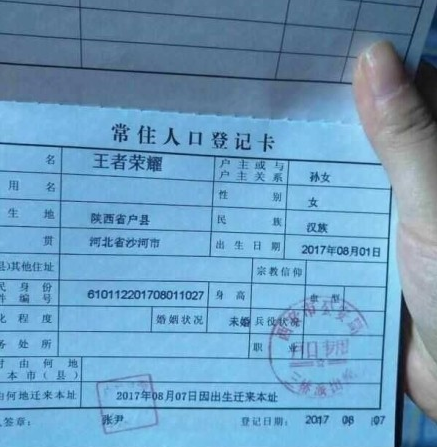 常住人口登记卡
名 王者荣耀 户主或与户主关系 孙女
用名 性别 女
生地 陕西省户县 民族 汉族
贯 河北省沙河市 出生日期 2017年08月01日
县)其他住址 宗教信仰
民身份
件编号 610112201708011027 身高 血型
化程度 婚姻状况 未婚 兵役状况
务处所 职业
时由何地
本市(县)
由何地迁来本址 2017年08月07日因出生迁来本址
人签章: 张尹 登记日期: 2017 08 07